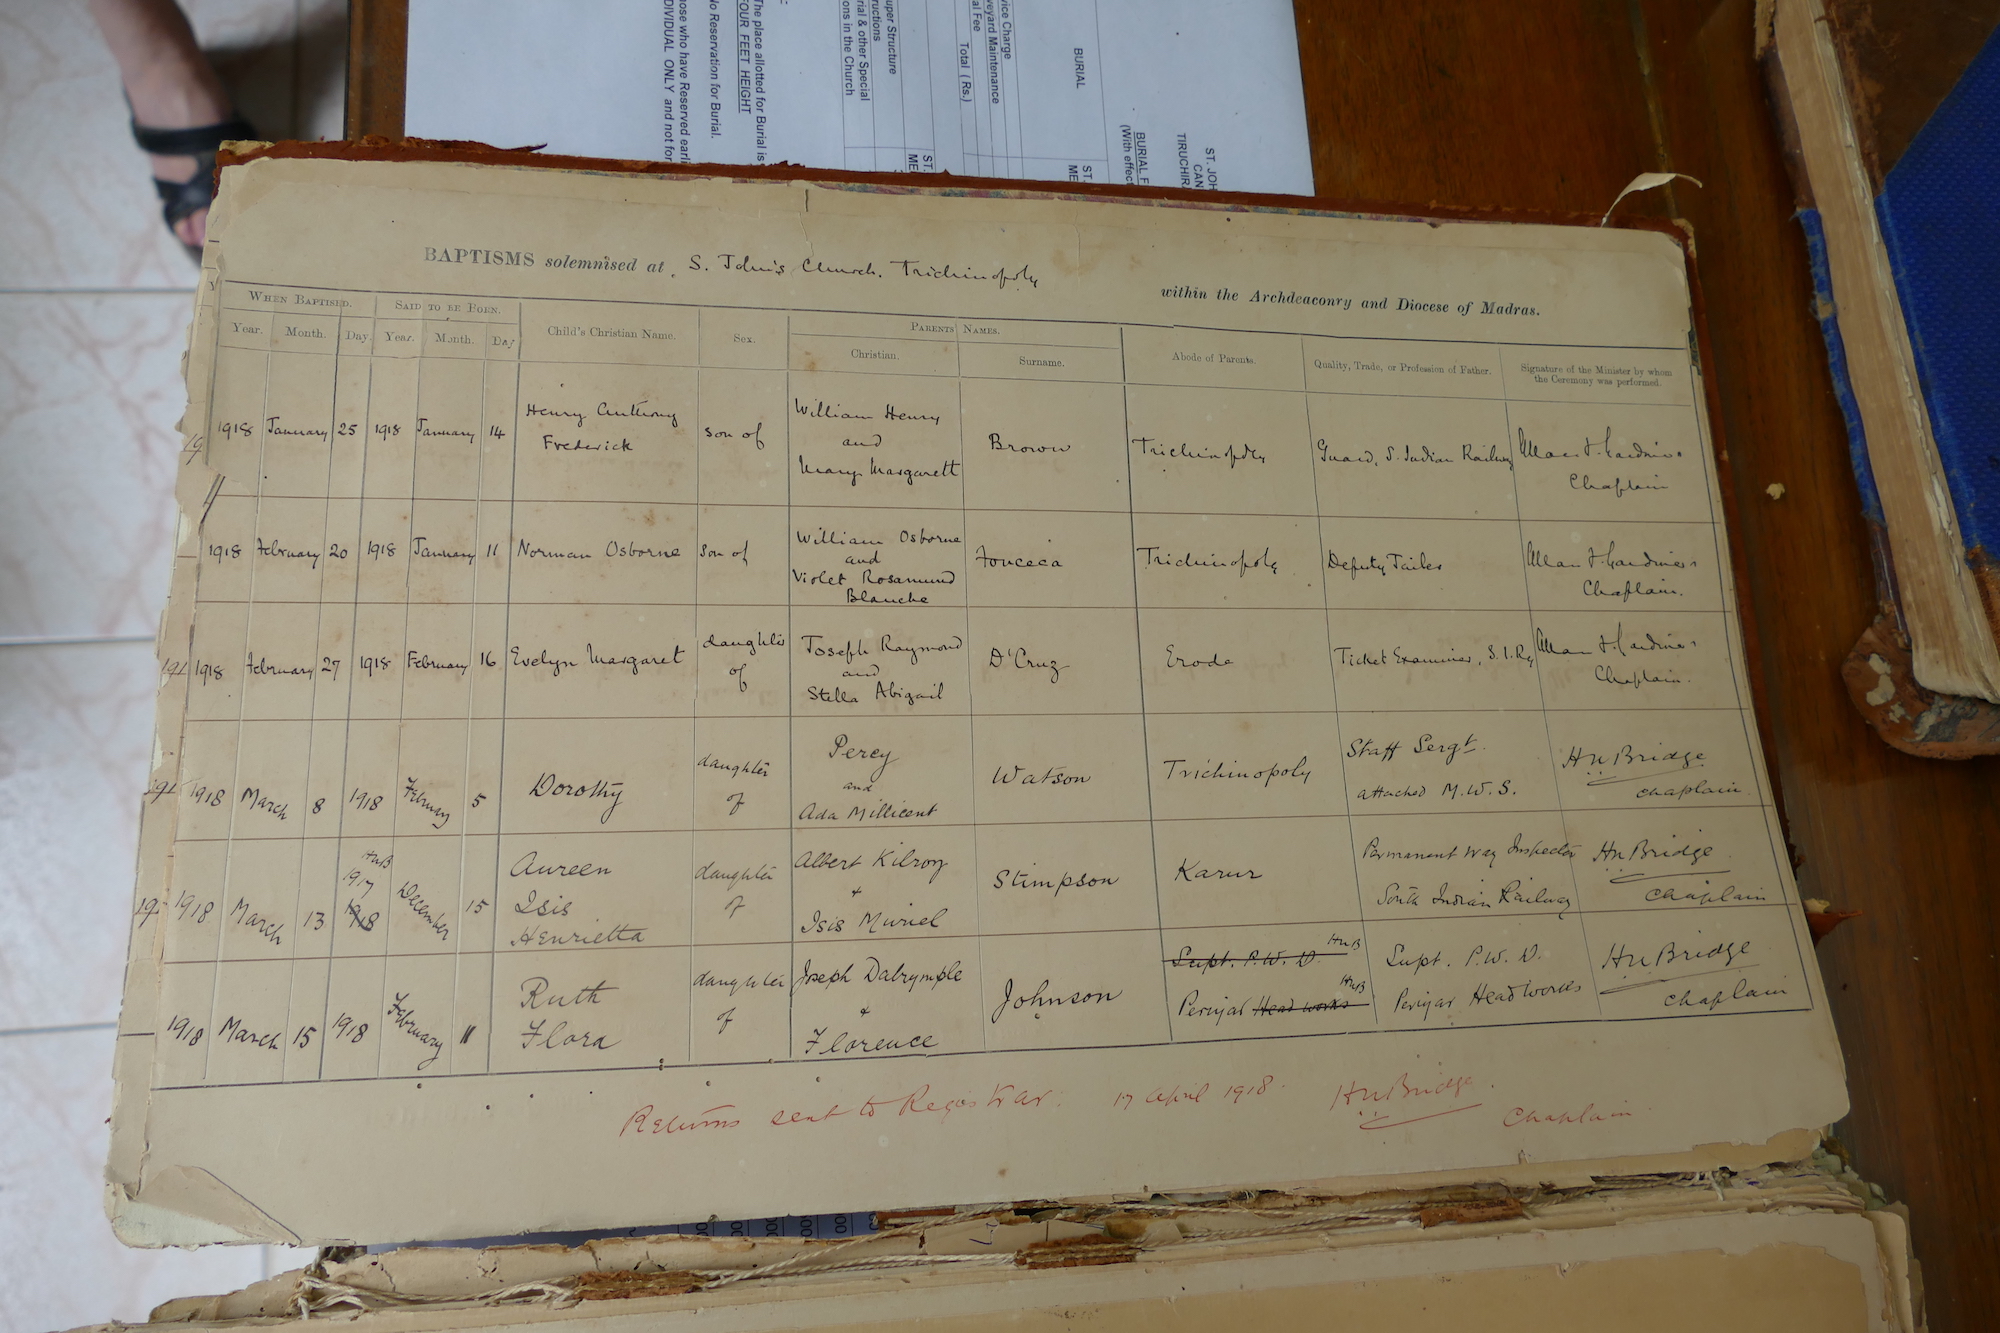 The place allotted for Burial is
FOUR FEET HEIGHT
No Reservation for Burial.
hose who have Reserved earli
DIVIDUAL ONLY and not for
vice Charge
eyard Maintenance
al Fee
Total (Rs.)
BURIAL
uper Structure
ructions
rial & other Special
ions in the Church
ST.
ME
ST.
ME
BURIAL F
(With effect
ST. JOH
CAN
TIRUCHIR
BAPTISMS solemnised at S. John's Church. Trichinopoly within the Archdeaconry and Diocese of Madras.
WHEN BAPTISED. SAID TO BE BORN. Child's Christian Name. Sex. PARENTS NAMES. Abode of Parents. Quality, Trade, or Profession of Father. Signature of the Minister by whom the Ceremony was performed.
Year. Month. Day. Year. Month. Day Christian. Surname.
1918 January 25 1918 January 14 Henry Anthony Frederick son of William Henry and Mary Margarett Brown Trichinopoly Guard, S. Indian Railway Allan F. Gardiner Chaplain
1918 February 20 1918 January 11 Norman Osborne son of William Osborne and Violet Rosamund Blanche Fonceca Trichinopoly Deputy Jailer Allan F. Gardiner Chaplain.
1918 February 27 1918 February 16 Evelyn Margaret daughter of Joseph Raymond and Stella Abigail D'Cruz Erode Ticket Examiner, S.I.Ry Allan F. Gardiner Chaplain.
1918 March 8 1918 February 5 Dorothy daughter of Percy and Ada Millicent Watson Trichinopoly Staff Sergt. attached M.W.S. HWBridge chaplain.
1918 March 13 HWB 1917 1918 December 15 Aureen Isis Henrietta daughter of Albert Kilroy + Isis Muriel Stimpson Karur Permanent Way Inspector South Indian Railway HWBridge chaplain
1918 March 15 1918 February 11 Ruth Flora daughter of Joseph Dalrymple + Florence Johnson Supt. P.W.D. HWB Periyar Head works HWB Supt. P.W.D. Periyar Headworks HWBridge chaplain
Returns sent to Registrar. 17 April 1918. HWBridge. Chaplain.